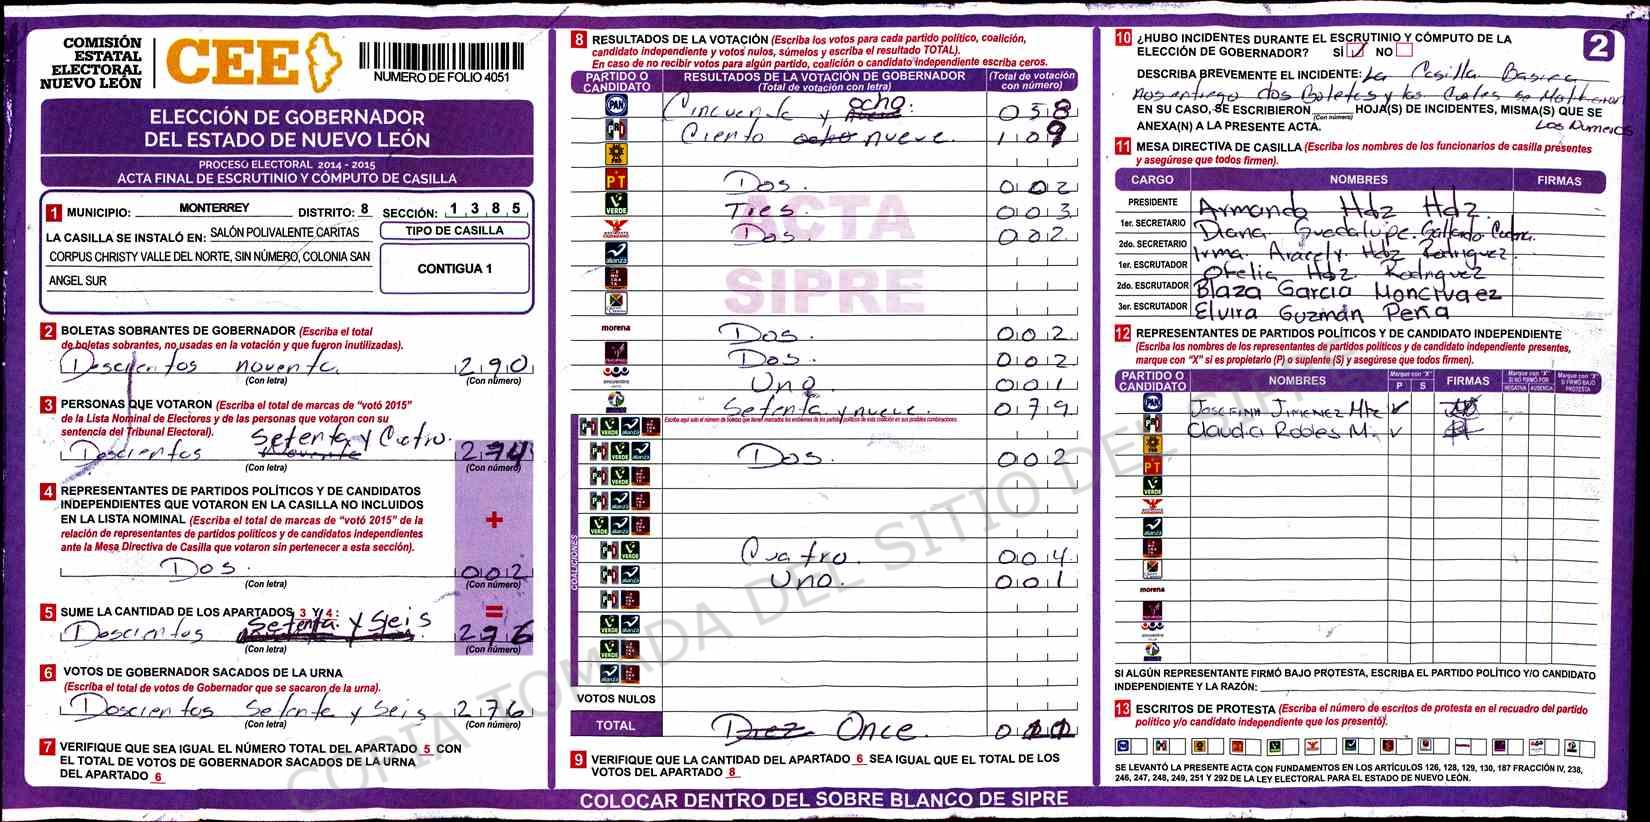 COMISIÓN
ESTATAL
ELECTORAL
NUEVO LEÓN
CEE
NUMERO DE FOLIO 4051
ELECCIÓN DE GOBERNADOR
DEL ESTADO DE NUEVO LEÓN
PROCESO ELECTORAL 2014 - 2015
ACTA FINAL DE ESCRUTINIO Y CÓMPUTO DE CASILLA
1 MUNICIPIO: MONTERREY DISTRITO: 8 SECCIÓN: 1 3 8 5
LA CASILLA SE INSTALÓ EN: SALÓN POLIVALENTE CARITAS
CORPUS CHRISTY VALLE DEL NORTE, SIN NÚMERO, COLONIA SAN
ANGEL SUR
TIPO DE CASILLA
CONTIGUA 1
2 BOLETAS SOBRANTES DE GOBERNADOR (Escriba el total
de boletas sobrantes, no usadas en la votación y que fueron inutilizadas).
Doscientos noventa 290
(Con letra) (Con número)
3 PERSONAS QUE VOTARON (Escriba el total de marcas de “votó 2015”
de la Lista Nominal de Electores y de las personas que votaron con su
sentencia del Tribunal Electoral).
Setenta y Cuatro.
Doscientos 274
(Con letra) (Con número)
4 REPRESENTANTES DE PARTIDOS POLÍTICOS Y DE CANDIDATOS
INDEPENDIENTES QUE VOTARON EN LA CASILLA NO INCLUIDOS
EN LA LISTA NOMINAL (Escriba el total de marcas de “votó 2015” de la
relación de representantes de partidos políticos y de candidatos independientes
ante la Mesa Directiva de Casilla que votaron sin pertenecer a esta sección).
+
Dos. 002
(Con letra) (Con número)
5 SUME LA CANTIDAD DE LOS APARTADOS 3 Y 4:
=
Doscientos Setenta y Seis 276
(Con letra) (Con número)
6 VOTOS DE GOBERNADOR SACADOS DE LA URNA
(Escriba el total de votos de Gobernador que se sacaron de la urna).
Doscientos Setenta y Seis 276
(Con letra) (Con número)
7 VERIFIQUE QUE SEA IGUAL EL NÚMERO TOTAL DEL APARTADO 5 CON
EL TOTAL DE VOTOS DE GOBERNADOR SACADOS DE LA URNA
DEL APARTADO 6
8 RESULTADOS DE LA VOTACIÓN (Escriba los votos para cada partido político, coalición,
candidato independiente y votos nulos, súmelos y escriba el resultado TOTAL).
En caso de no recibir votos para algún partido, coalición o candidato independiente escriba ceros.
PARTIDO O
CANDIDATO
RESULTADOS DE LA VOTACIÓN DE GOBERNADOR
(Total de votación con letra)
(Total de votación
con número)
PAN Cincuenta y ocho. 058
PRI Ciento nueve. 109
PRD
PT Dos. 002
VERDE Tres. 003
Dos. 002
alianza
morena Dos. 002
Dos. 002
encuentro Uno 001
Setenta y nueve. 079
Dos. 002
COALICIONES
Cuatro. 004
Uno. 001
VOTOS NULOS
TOTAL Diez Once. 011
ACTA
SIPRE
COPIA TOMADA DEL SITIO DEL SIPRE
9 VERIFIQUE QUE LA CANTIDAD DEL APARTADO 6 SEA IGUAL QUE EL TOTAL DE LOS
VOTOS DEL APARTADO 8
COLOCAR DENTRO DEL SOBRE BLANCO DE SIPRE
2
10 ¿HUBO INCIDENTES DURANTE EL ESCRUTINIO Y CÓMPUTO DE LA
ELECCIÓN DE GOBERNADOR? SÍ NO
DESCRIBA BREVEMENTE EL INCIDENTE: La Casilla Basica
nos entrego dos Boletas y los Cuales se
EN SU CASO, SE ESCRIBIERON HOJA(S) DE INCIDENTES, MISMA(S) QUE SE
(Con número)
ANEXA(N) A LA PRESENTE ACTA. Los Numeros
11 MESA DIRECTIVA DE CASILLA (Escriba los nombres de los funcionarios de casilla présentes
y asegúrese que todos firmen).
CARGO NOMBRES FIRMAS
PRESIDENTE Armando Hdz Hdz.
1er. SECRETARIO Diana Guadalupe. Gallardo
2do. SECRETARIO Irma. Aracely. Hdz Rodriguez.
1er. ESCRUTADOR Ofelia Hdz. Rodriguez
2do. ESCRUTADOR Blaza Garcia Moncivaez
3er. ESCRUTADOR Elvira Guzmán Peña
12 REPRESENTANTES DE PARTIDOS POLÍTICOS Y DE CANDIDATO INDEPENDIENTE
(Escriba los nombres de los representantes de partidos políticos y de candidato independiente presentes,
marque con “X” si es propietario (P) o suplente (S) y asegúrese que todos firmen).
PARTIDO O
CANDIDATO
NOMBRES
Marque con “X”
P S
FIRMAS
Marque con “X”
SI NO FIRMÓ POR
NEGATIVA AUSENCIA
Marque con “X”
SI FIRMÓ BAJO
PROTESTA
PAN Josefina Jimenez Mtz
PRI Claudia Robles M.
PRD
PT
VERDE
alianza
morena
encuentro
SI ALGÚN REPRESENTANTE FIRMÓ BAJO PROTESTA, ESCRIBA EL PARTIDO POLÍTICO Y/O CANDIDATO
INDEPENDIENTE Y LA RAZÓN:
13 ESCRITOS DE PROTESTA (Escriba el número de escritos de protesta en el recuadro del partido
político y/o candidato independiente que los presentó).
SE LEVANTÓ LA PRESENTE ACTA CON FUNDAMENTOS EN LOS ARTÍCULOS 126, 128, 129, 130, 187 FRACCIÓN IV, 238,
246, 247, 248, 249, 251 Y 292 DE LA LEY ELECTORAL PARA EL ESTADO DE NUEVO LEÓN.